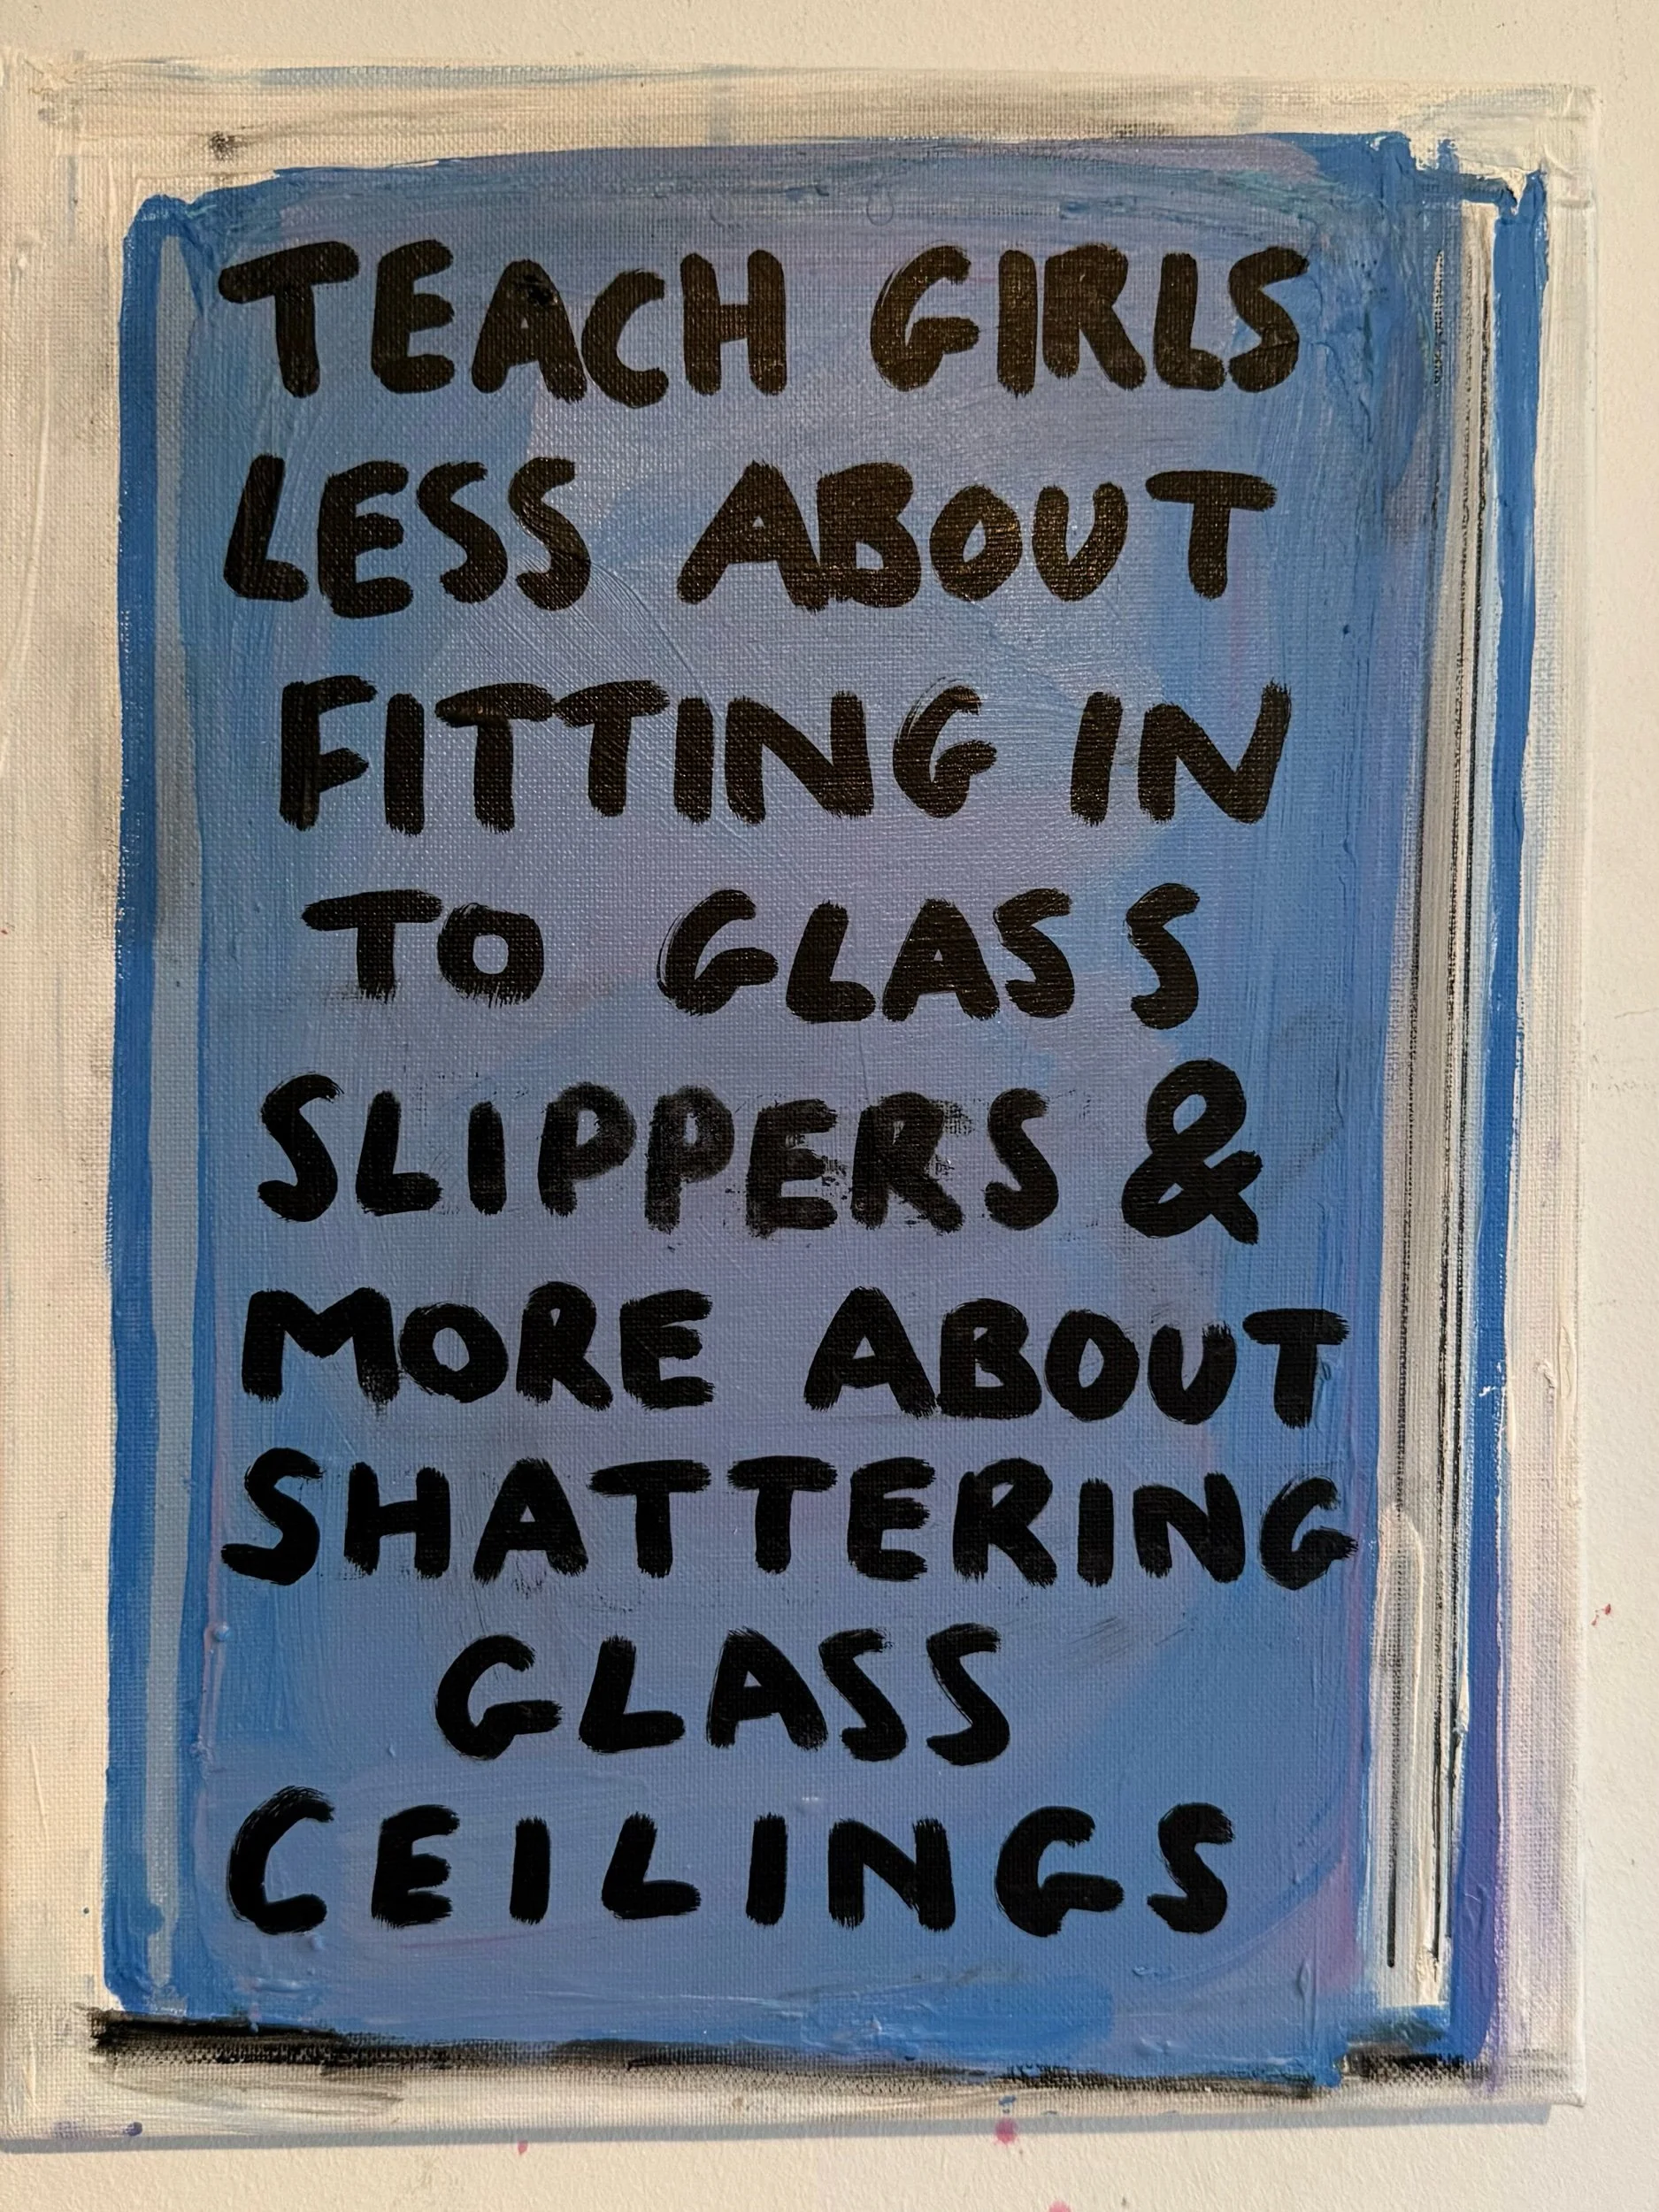 TEACH GIRLS
LESS ABOUT
FITTING IN
TO GLASS
SLIPPERS &
MORE ABOUT
SHATTERING
GLASS
CEILINGS